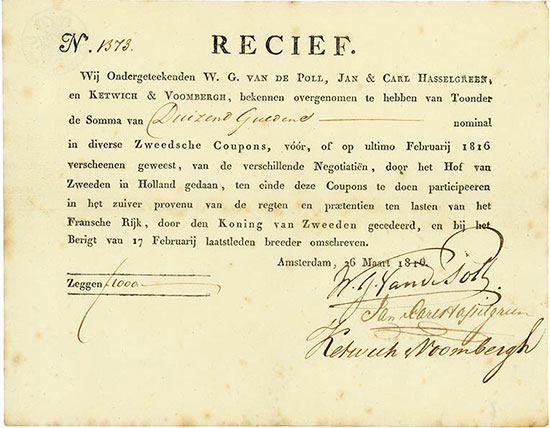 N. 1373. RECIEF.
Wij Ondergeteekenden W. G. VAN DE POLL, JAN & CARL HASSELGREEN,
en KETWICH & VOOMBERGH, bekennen overgenomen te hebben van Toonder
de Somma van Duizend Guldens nominal
in diverse Zweedsche Coupons, vóór, of op ultimo Februarij 1816
verscheenen geweest, van de verschillende Negotiatiën, door het Hof van
Zweeden in Holland gedaan, ten einde deze Coupons te doen participeeren
in het zuiver provenu van de regten en prætentien ten lasten van het
Fransche Rijk, door den Koning van Zweeden gecedeerd, en bij het
Berigt van 17 Februarij laatstleden breeder omschreven.
Amsterdam, 26 Maart 1816.
Zeggen ƒ1000
W. G. Van de Poll.
Jan & Carl Hasselgreen
Ketwich & Voombergh